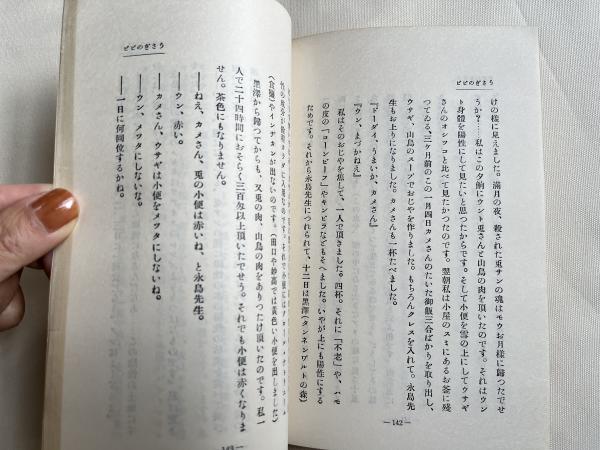 ピピのぎさう
けの樣に見えました。滿月の夜、殺された兎の魂はモウお月樣に歸つたでせ
うか?……私はこの夕餉にウント兎さんと山鳥の肉を頂いたのです。それはウン
ト身體を陽性にして見たいと思つたからです。そして小便を雪の上にしてウサギ
さんのオシツコと比べて見たかつたのです。翌朝私は小屋のスミにあるお釜に殘
つてゐる、三ケ月前のこの一月四日カメさんのたいた御飯三合ばかりを取り出し、
ウサギ、山鳥のスープでおじやを作りました。もちろんクレスを入れて。永島先
生もお上りになりました。カメさんも一杯たべました。
『ドーダイ、うまいか、カメさん』
『ウン、まづかねえ』
私はそのおじやを焦して、一人で頂きました。四杯。それに「不老」や、ハモ
の度の「コーンビーフ」やキンピラなどもそへました。いやが上にも陽性にする
ためです。それから永島先生につれられて、十二日は黑澤(タンネンワルトの森)
— 142 —
ピピのぎさう
(食鹽)やインヂカンが出ないのです。(田口や妙高では黃色い小便を出しました)
黑澤から歸つてからも、又兎の肉、山鳥の肉をありつたけ頂いたのです。私一
人で二十四時間におそらく三百匁以上頂いたでせう。それでも小便は赤くなりま
せん。茶色にもなりません。
——ねえ、カメさん、兎の小便は赤いね、と永島先生。
——ウン、赤い。
——カメさん、ウサギは小便をメツタにしないね。
——ウン、メツタにしないな。
——一日に何囘位するかね。
— 143 —